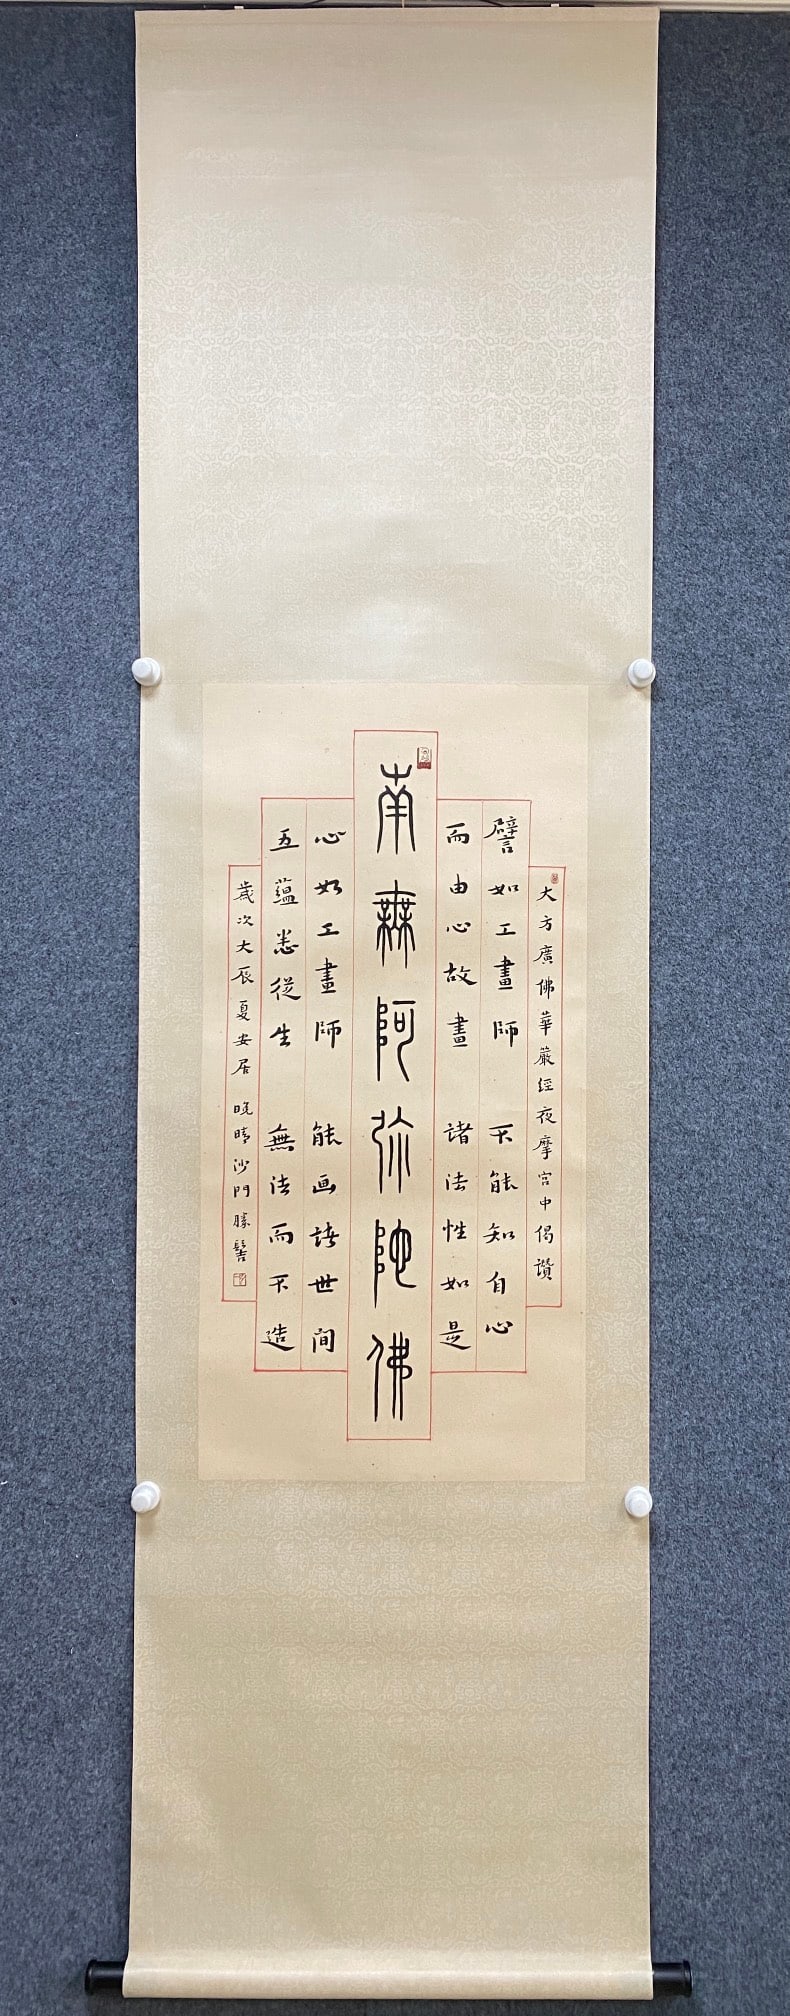 大方廣佛華嚴經夜摩宮中偈讚
譬如工畫師 不能知自心
而由心故畫 諸法性如是
南無阿彌陀佛
心如工畫師 能画諸世間
五蘊悉從生 無法而不造
歲次大辰夏安居 晚晴沙門勝髻